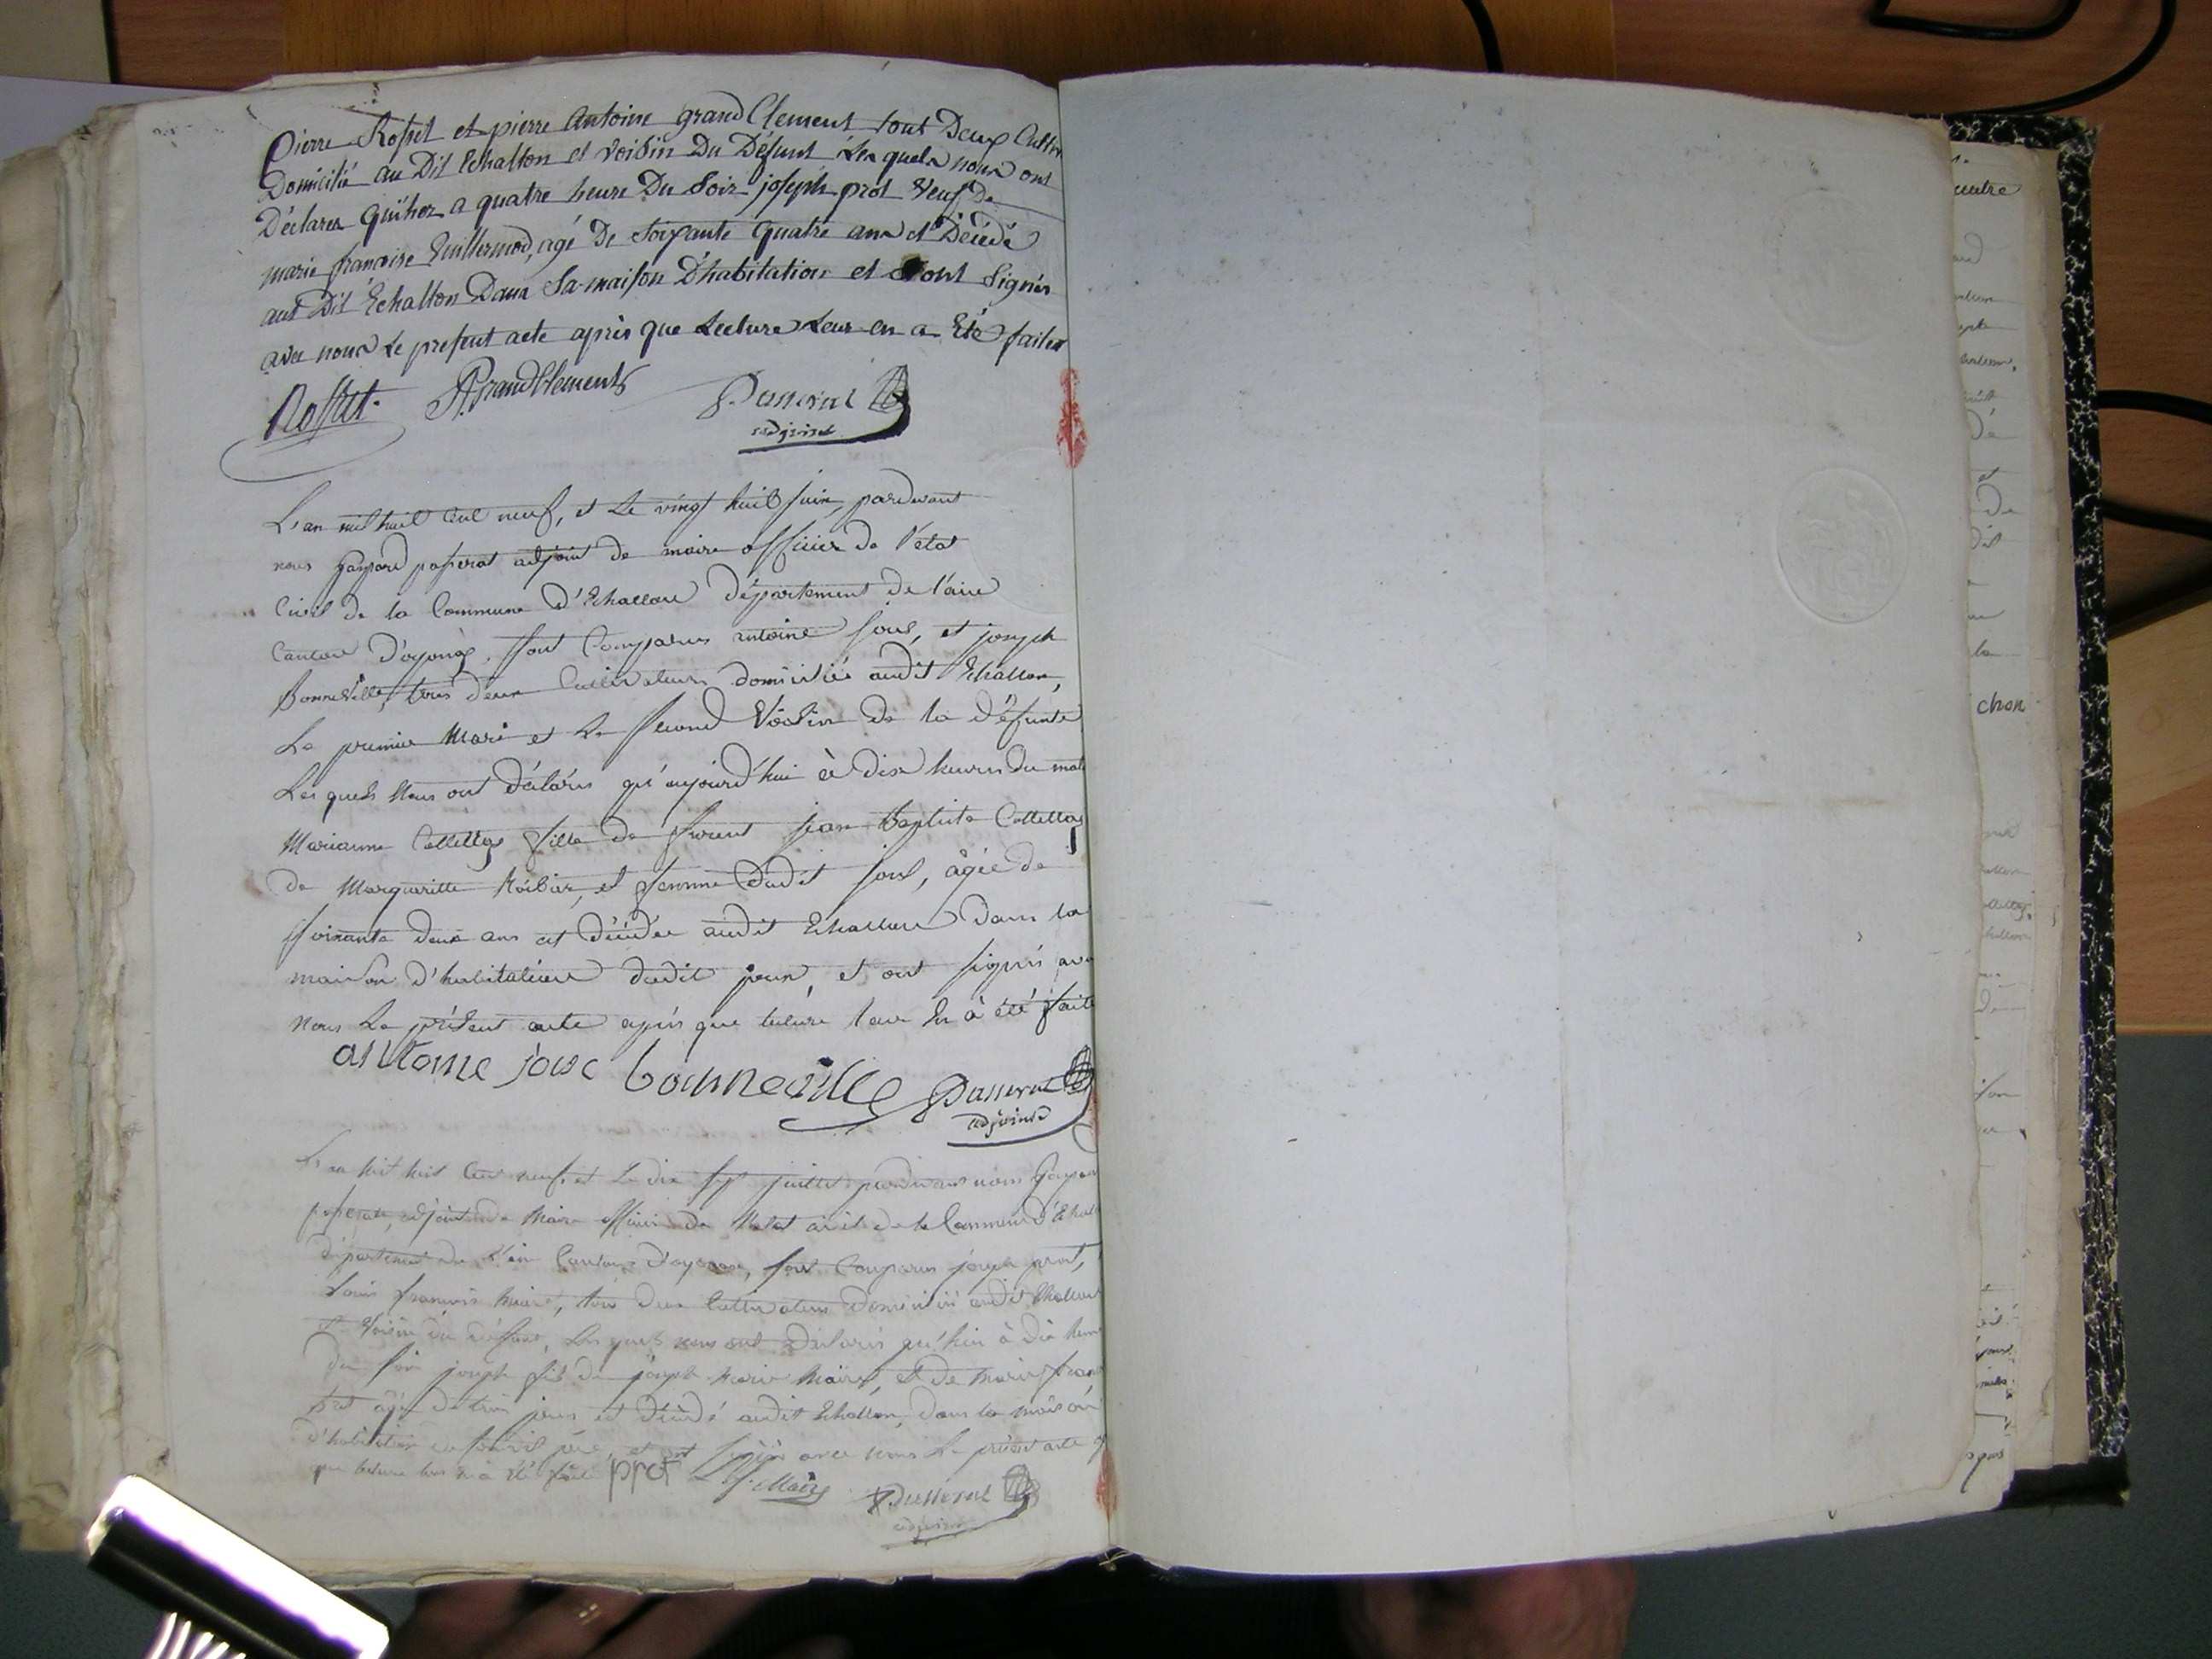 Pierre Rosset et pierre Antoine grand Clement tout Deux Cultiv
Domicilié au Dit Echallon et Voisin Du Défunt Les quels nous ont
Déclarer Qu'hier a quatre heure Du Soir joseph prost Veuf De
marie françoise Guillermod, agé De Soixante Quatre ans et Décédé
aut Dit Echallon Dans Sa maison D'habitation et ont Signés
avec nous Le present acte après que Lecture Leur en a Eté faites
Rosset P. A. Grandclement Passerat
adjoint
L'an mil huit cent neuf, et Le vingt huit juin, pardevant
nous Gaspard passerat adjoint de maire officier de l'état
Civil de la Commune d'Echallon Département de l'ain
Canton d'oyonax, sont Comparus antoine Joux, et joseph
Bonneville, tous deux Cultivateurs domiciliés audit Echallon,
Le premier Mari et Le second Voisin de la défunte
Les quels Nous ont déclarés qu'aujourd'hui à dix heures du mat
Marianne Collettaz fille de jean Baptiste Collettaz
de Marguerite et femme dudit Joux, âgée de
soixante deux ans est décédée audit Echallon dans la
maison d'habitation dudit joux, et ont signés avec
nous Le présent acte après que lecture leur En à été faite
antoine joux bonneville Passerat
adjoint
L'an mil huit cent neuf, et Le dix sept juillet pardevant nous Gaspar
passerat, adjoint de Maire officier de l'état civil de la Commune d'Echal
département de l'ain Canton d'oyonax, sont Comparus joseph prost,
Louis françois maire, tous deux Cultivateurs Domiciliés audit Echallon
et Voisin du défunt, Les quels nous ont déclarés qu'hier à dix heures
du soir joseph fils de joseph Marie Maire, et De Marie fran
prost agé de trois jours est décédé audit Echallon, dans la maison
d'habitation père, et ont signés avec nous Le présent acte
que lecture leur en à été faite prost f. Maire Passerat
adjoint